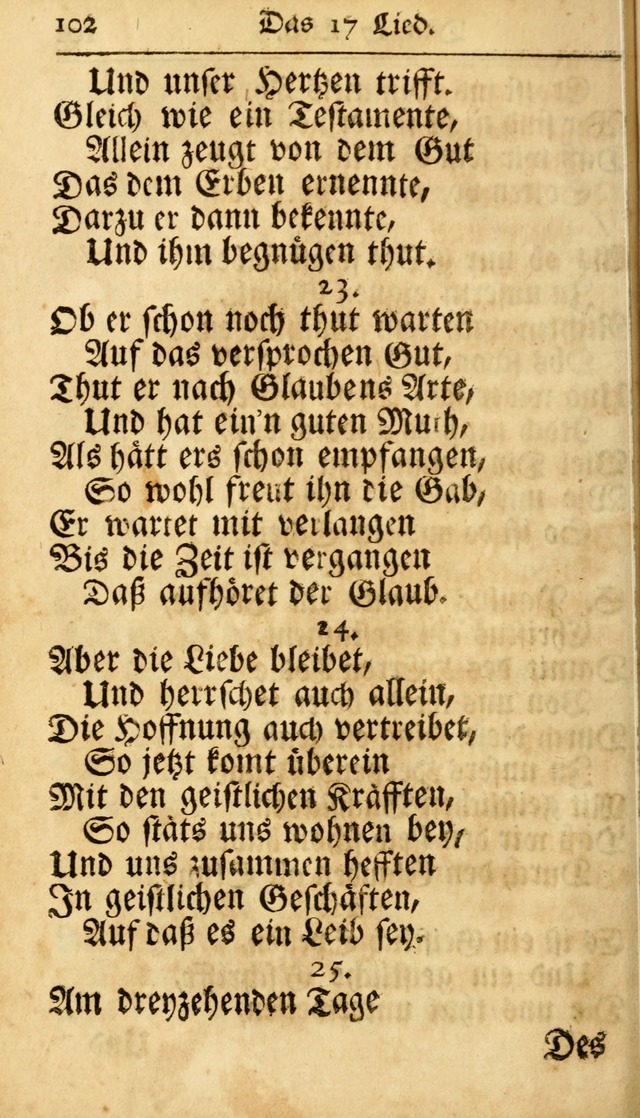 102 Das 17 Lied.
Und unser Hertzen trifft.
Gleich wie ein Testamente,
Allein zeugt von dem Gut
Das dem Erben ernennte,
Darzu er dann bekennte,
Und ihm begnügen thut.
23.
Ob er schon noch thut warten
Auf das versprochen Gut,
Thut er nach Glaubens Arte,
Und hat ein'n guten Muth,
Als hätt ers schon empfangen,
So wohl freut ihn die Gab,
Er wartet mit verlangen
Bis die Zeit ist vergangen
Daß aufhöret der Glaub.
24.
Aber die Liebe bleibet,
Und herrschet auch allein,
Die Hoffnung auch vertreibet,
So jetzt komt überein
Mit den geistlichen Kräfften,
So stäts uns wohnen bey,
Und uns zusammen hefften
In geistlichen Geschäften,
Auf daß es ein Leib sey.
25.
Am dreyzehenden Tage
Des